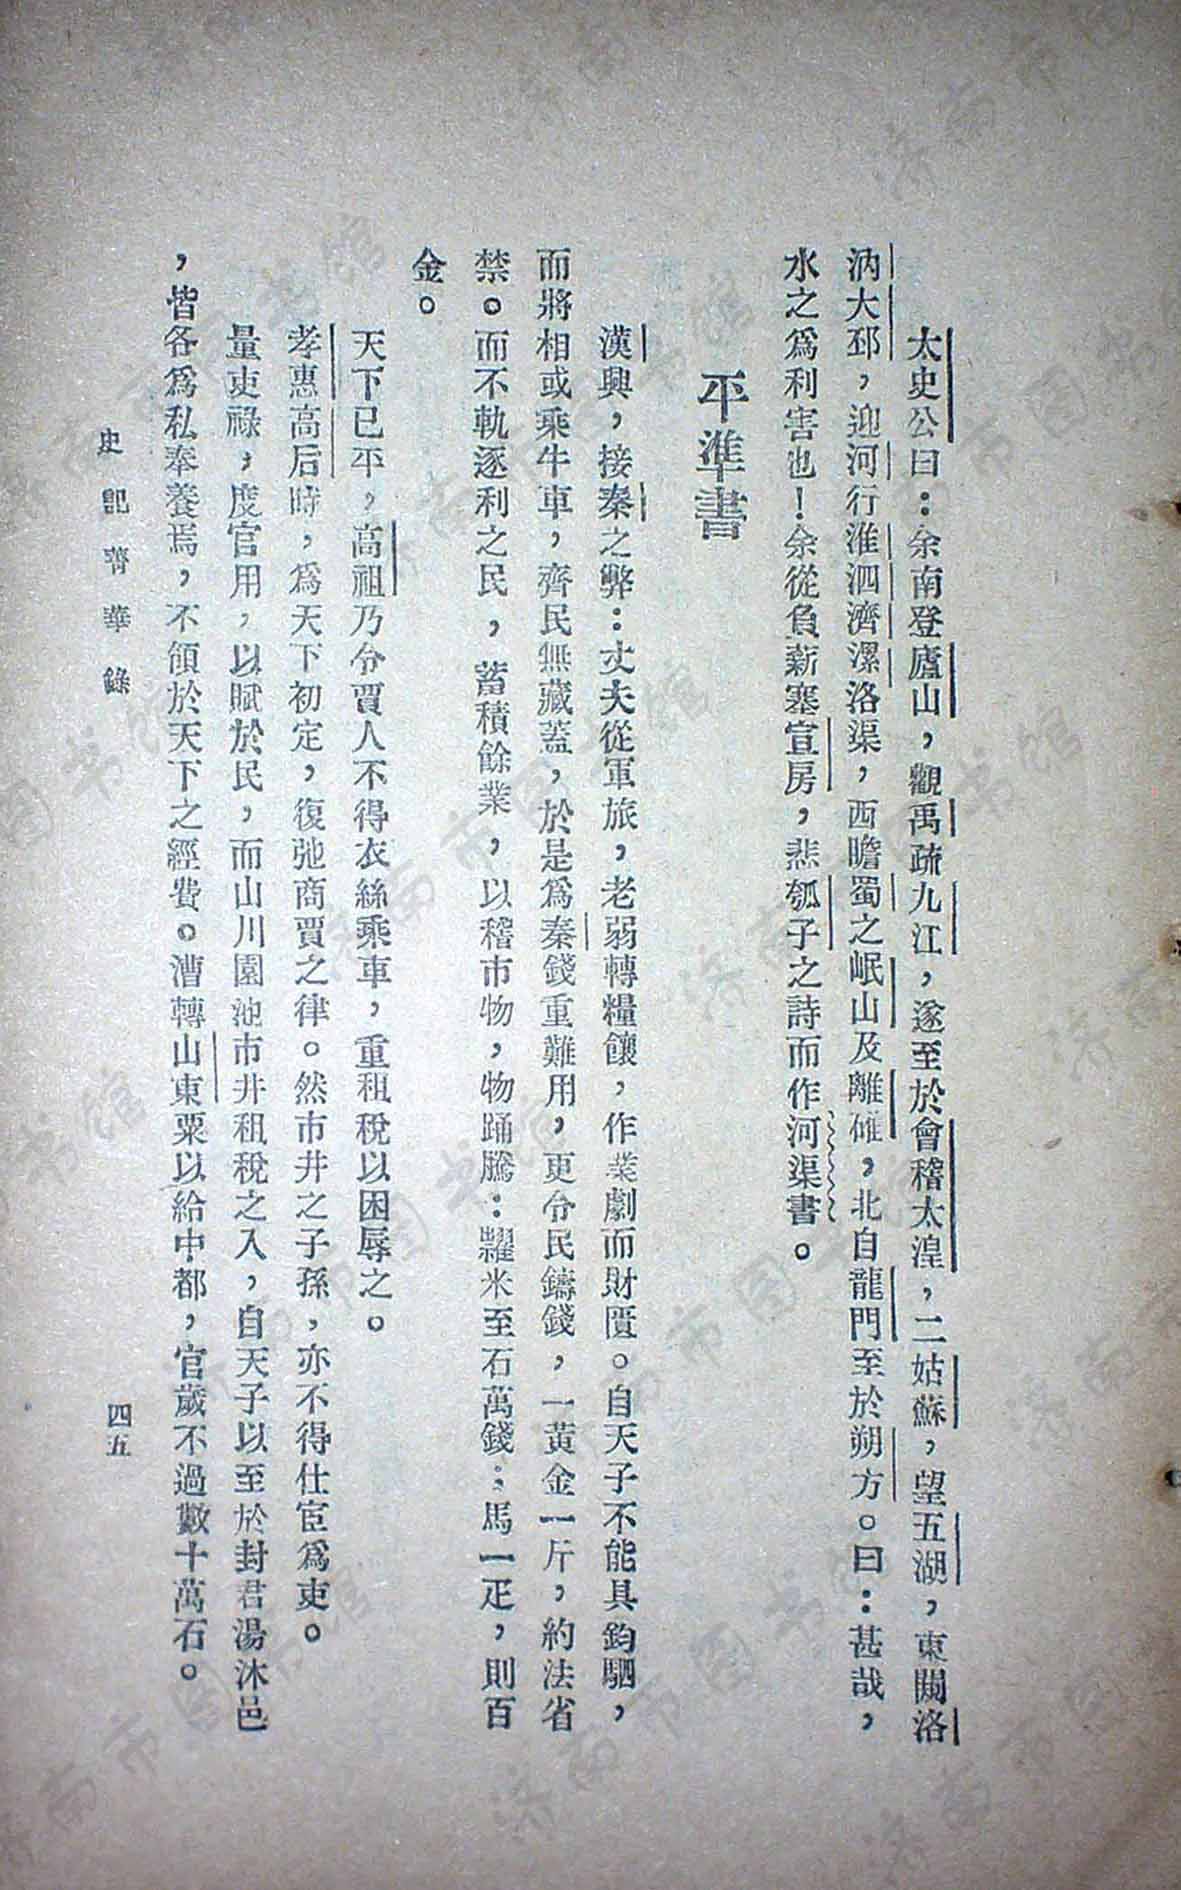 太史公曰：余南登廬山，觀禹疏九江，遂至於會稽太湟，二姑蘇，望五湖，東闚洛
汭大邳，迎河行淮泗濟漯洛渠，西瞻蜀之岷山及離碓，北自龍門至於朔方。曰：甚哉，
水之爲利害也！余從負薪塞宣房，悲瓠子之詩而作河渠書。
平準書
漢興，接秦之弊：丈夫從軍旅，老弱轉糧饟，作業劇而財匱。自天子不能具鈞駟，
而將相或乘牛車，齊民無藏蓋，於是爲秦錢重難用，更令民鑄錢，一黃金一斤，約法省
禁。而不軌逐利之民，蓄積餘業，以稽市物，物踊騰：糶米至石萬錢；馬一疋，則百
金。
天下已平，高祖乃令賈人不得衣絲乘車，重租稅以困辱之。
孝惠高后時，爲天下初定，復弛商賈之律。然市井之子孫，亦不得仕宦爲吏。
量吏祿，度官用，以賦於民，而山川園池市井租稅之入，自天子以至於封君湯沐邑
，皆各爲私奉養焉，不領於天下之經費。漕轉山東粟以給中都，官歲不過數十萬石。
史記菁華錄
四五
济南市图书馆